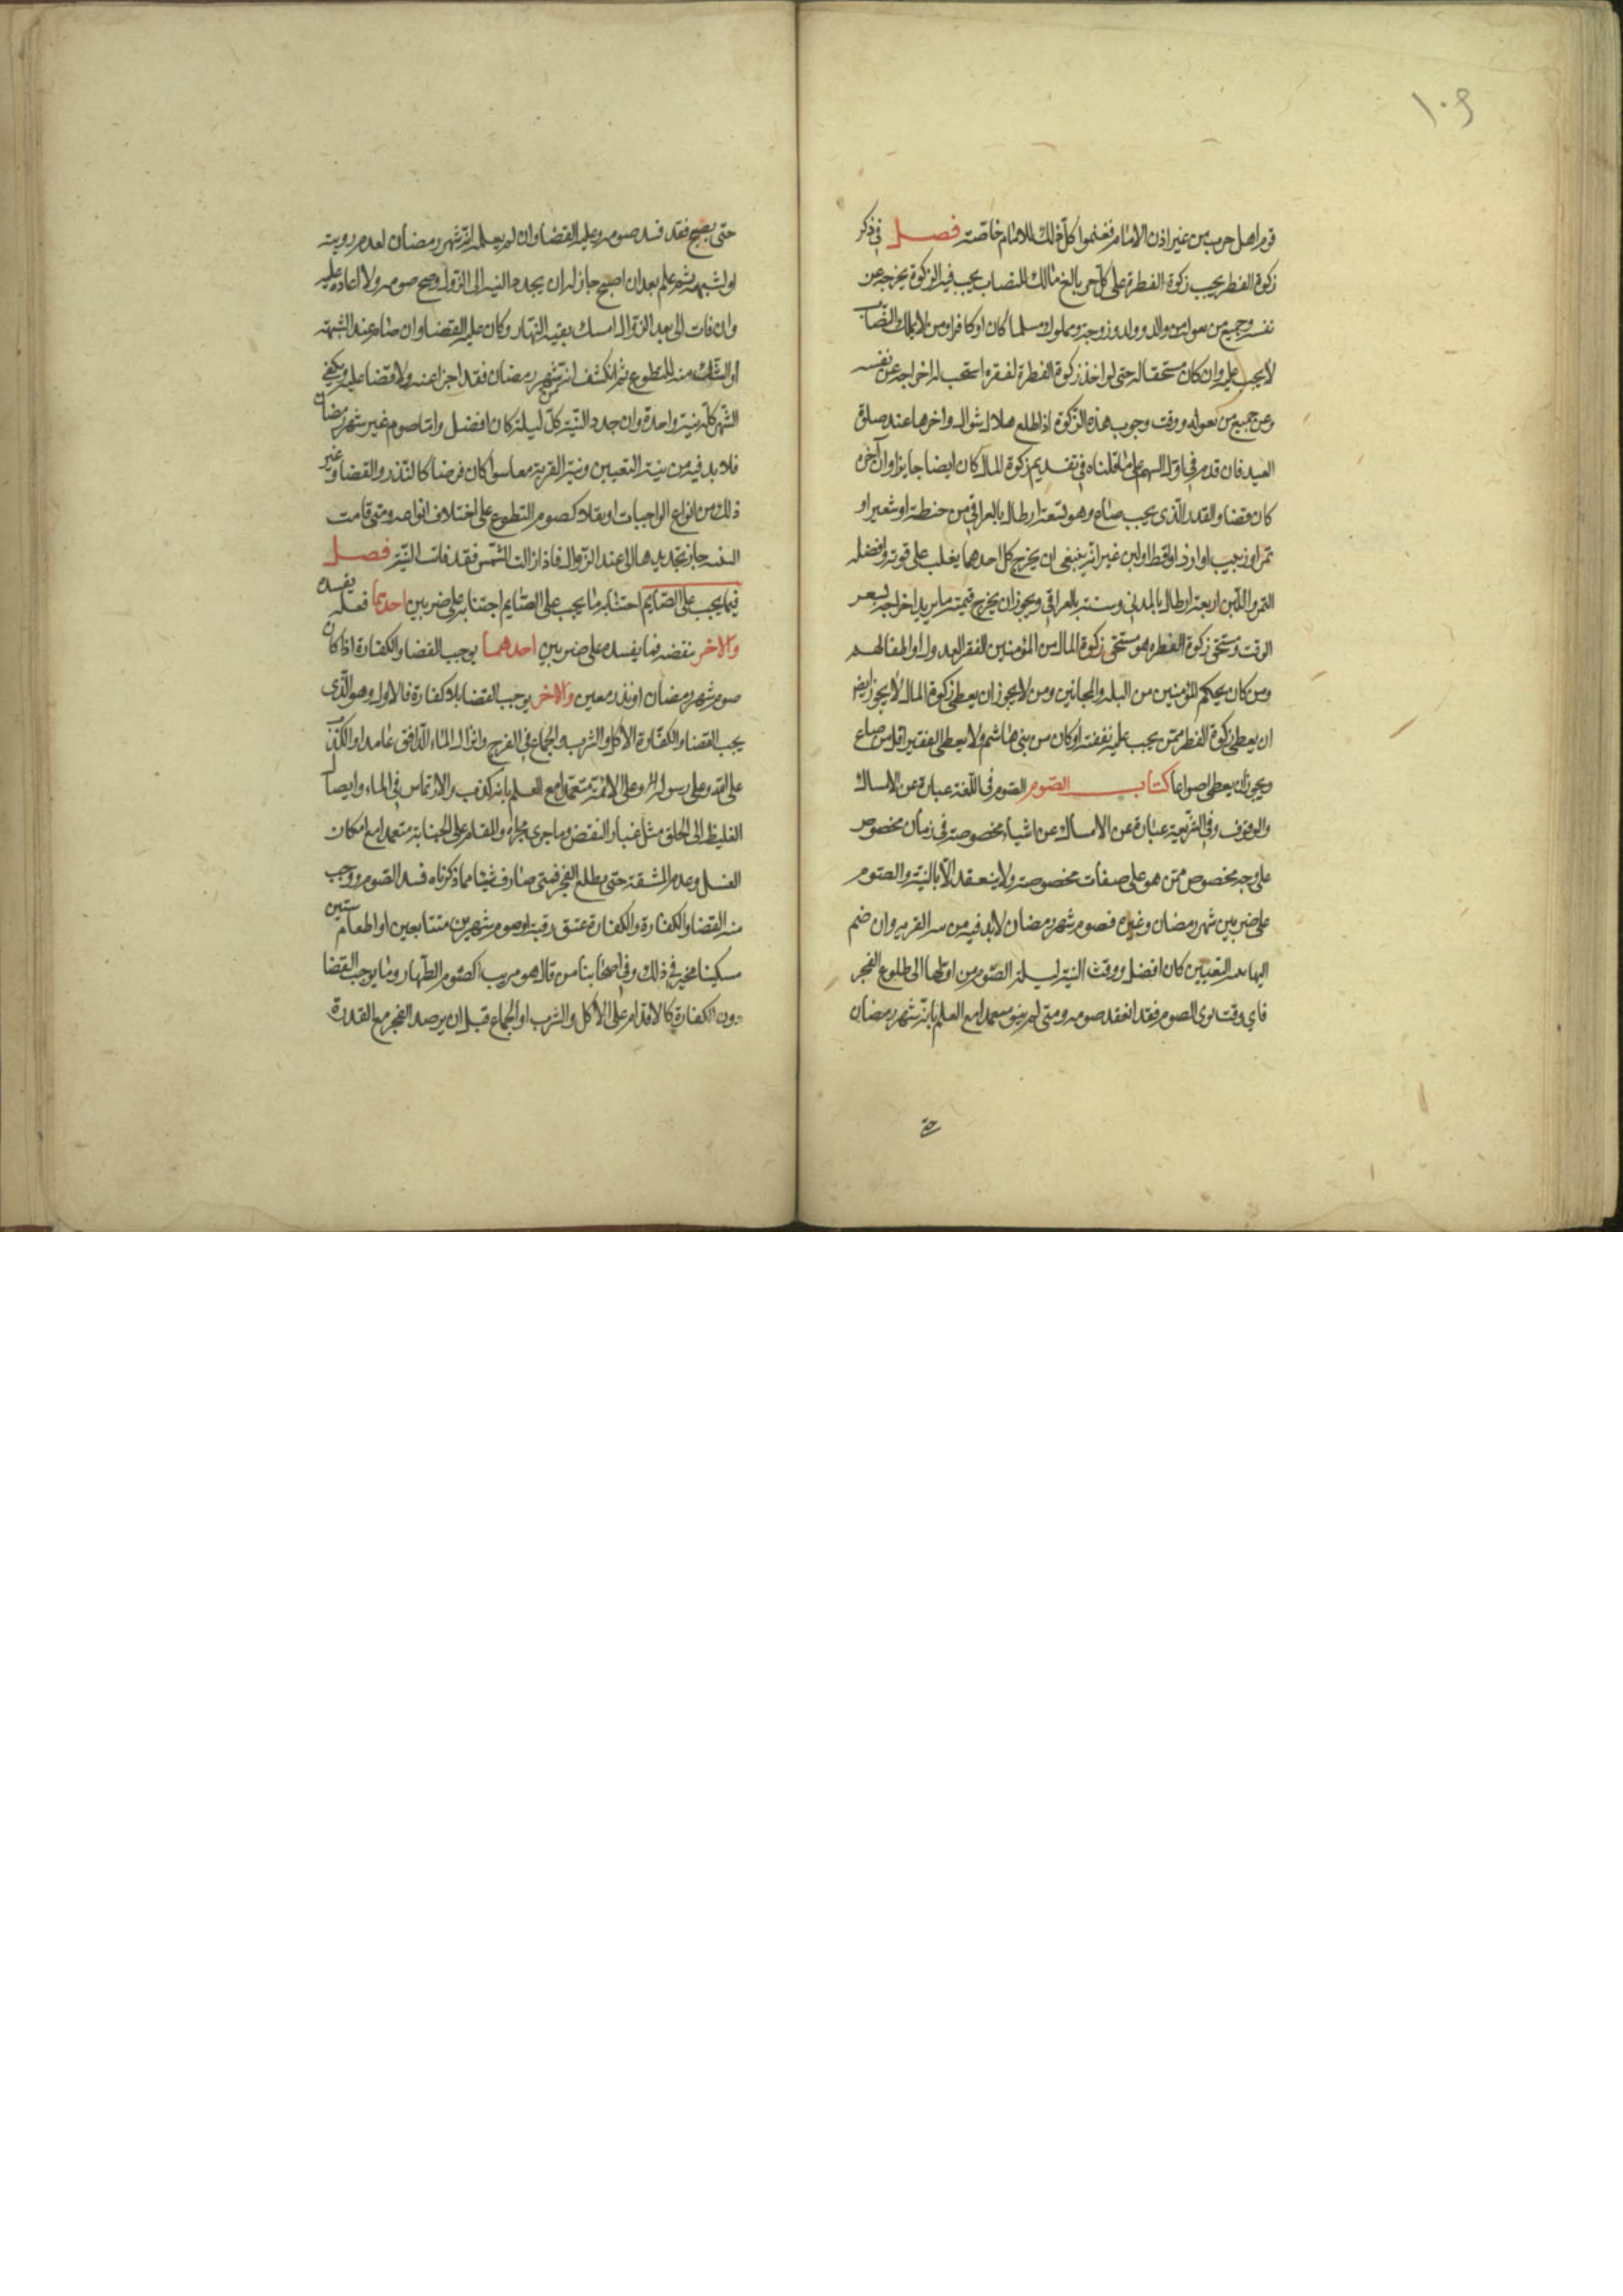 ١٠٩
قوم اهل حرب من غير اذن الامام فغنموا كل ذلك للامام خاصة فصل في ذكر
زكوة الفطر يجب زكوة الفطرة على كل حر بالغ مالك للنصاب يجب فيه الزكوة يخرجه عن
نفسه وجميع من يعوله من والد وولد وزوجة ومملوك مسلما كان او كافرا ومن لا يملك النصاب
لا يجب عليه وان كان مستحقا له حتى لو اخذ زكوة الفطرة لفقره استحب له اخراجه عن نفسه
وعن جميع من يعوله ووقت وجوب هذه الزكوة اذا طلع هلال شوال واخرها عند صلوة
العيد فان قدم في اول الشهر على ما قلناه في تقديم زكوة المال كان ايضا جايزا وان اخره
كان قضا والقدر الذي يجب صاع وهو تسعة ارطال بالعراقي من حنطة او شعير او
تمر او زبيب او ارز او اقط او لبن غير انه ينبغي ان يخرج كل احد مما يغلب على قوته وافضله
التمر واللبن اربعة ارطال بالمدني وستة بالعراقي ويجوز ان يخرج قيمته ما يريد اخراجه بسعر
الوقت ومستحق زكوة الفطرة هو مستحق زكوة المال من المؤمنين الفقر العدول او اطفالهم
ومن كان بحكم المؤمنين من البله والمجانين ومن لا يجوز ان يعطى زكوة المال لا يجوز ايض
ان يعطى زكوة الفطر ممن يجب عليه نفقته او كان من بني هاشم ولا يعطى الفقير اقل من صاع
ويجوز ان يعطى اصواعا كتاب الصوم الصوم في اللغة عبارة عن الامساك
والوقوف وفي الشريعة عبارة عن الامساك عن اشياء مخصوصة في زمان مخصوص
على وجه مخصوص ممن هو على صفات مخصوصة ولا ينعقد الا بالنية والصوم
على ضربين شهر رمضان وغيره فصوم شهر رمضان لا بد فيه من نية القربة وان ضم
اليها نية التعيين كان افضل ووقت النية ليلة الصوم من اولها الى طلوع الفجر
فاي وقت نوى الصوم فقد انعقد صومه ومتى لم ينو متعمدا مع العلم بانه شهر رمضان
حتى
حتى يصبح فقد فسد صومه وعليه القضا وان لم يعلم انه شهر رمضان لعدم رويته
او لشبهة ثم علم بعد ان اصبح جاز له ان يجدد النية الى الزوال وصح صومه ولا اعاده عليه
وان فات الى بعد الزوال امسك بقية النهار وكان عليه القضا وان صام عند الشبهة
او الشك بنية التطوع ثم انكشف انه شهر رمضان فقد اجزا عنه ولا قضا عليه ويكفي
الشهر كله نية واحدة وان جدد النية كل ليلة كان افضل واما صوم غير شهر رمضان
فلا بد فيه من نية التعيين ونية القربة معا سوا كان فرضا كالنذر والقضا وغير
ذلك من انواع الواجبات او نفلا كصوم التطوع على اختلاف انواعه ومتى فاتت
النية جاز تجديدها الى عند الزوال فاذا زالت الشمس فقد فات النية فصل
فيما يجب على الصايم اجتنابه ما يجب على الصايم اجتنابه على ضربين احدهما فعله يفسده
والاخر ينقضه فما يفسده على ضربين احدهما يوجب القضا والكفارة اذا كان
صوم شهر رمضان او نذر معين والاخر يوجب القضا بلا كفارة فالاول وهو الذي
يجب القضا والكفارة الاكل والشرب والجماع في الفرج وانزال الماء الدافق عامدا والكذب
على الله وعلى رسوله وعلى الائمة متعمدا مع العلم بانه كذب والارتماس في الماء وايصال
الغليظ الى الحلق مثل غبار النفض وما جرى مجراه والمقام على الجنابة متعمدا مع امكان
الغسل وعدم المشقة حتى يطلع الفجر فمتى صادف شيئا مما ذكرناه فسد الصوم ووجب
منه القضا والكفارة والكفارة عتق رقبة او صوم شهرين متتابعين او اطعام ستين
مسكينا مخير في ذلك وفي اصحابنا من قال هو مرتب كصوم الظهار وما يوجب القضا
دون الكفارة كالاقدام على الاكل والشرب او الجماع قبل ان يرصد الفجر مع القدرة